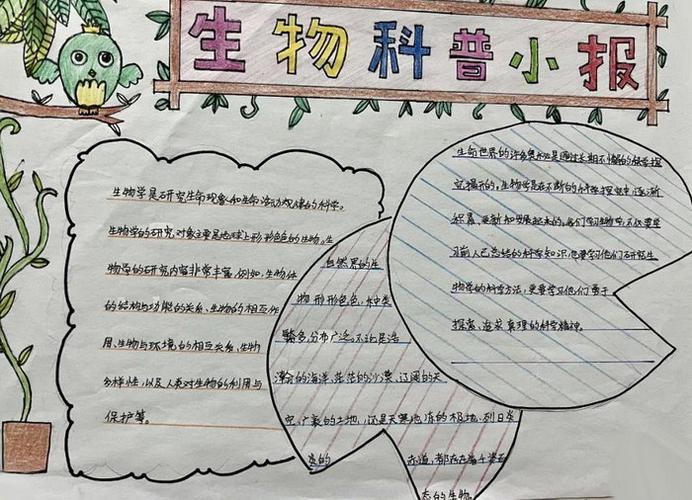 生物科普小报
生物学是研究生命现象和生命活动规律的科学。
生物学的研究对象主要是地球上形形色色的生物。生
物学的研究内容非常丰富,例如,生物体
的结构与功能的关系、生物的相互作
用、生物与环境的相互关系、生物
多样性,以及人类对生物的利用与
保护等。
自然界的生
物形形色色,种类
繁多,分布广泛。不论是浩
瀚的海洋、茫茫的沙漠、辽阔的天
空、广袤的土地,还是天寒地冻的极地、烈日炎
炎的赤道,都存在着千姿百
态的生物。
生命世界的许多奥秘是通过长期不懈的科学探
究揭示的。生物学是在不断的科学探究中逐渐
积累、更新和发展起来的。我们学习生物学,不仅要学
习前人已总结的科学知识,也要学习他们研究生
物学的科学方法,更要学习他们勇于
探索、追求真理的科学精神。